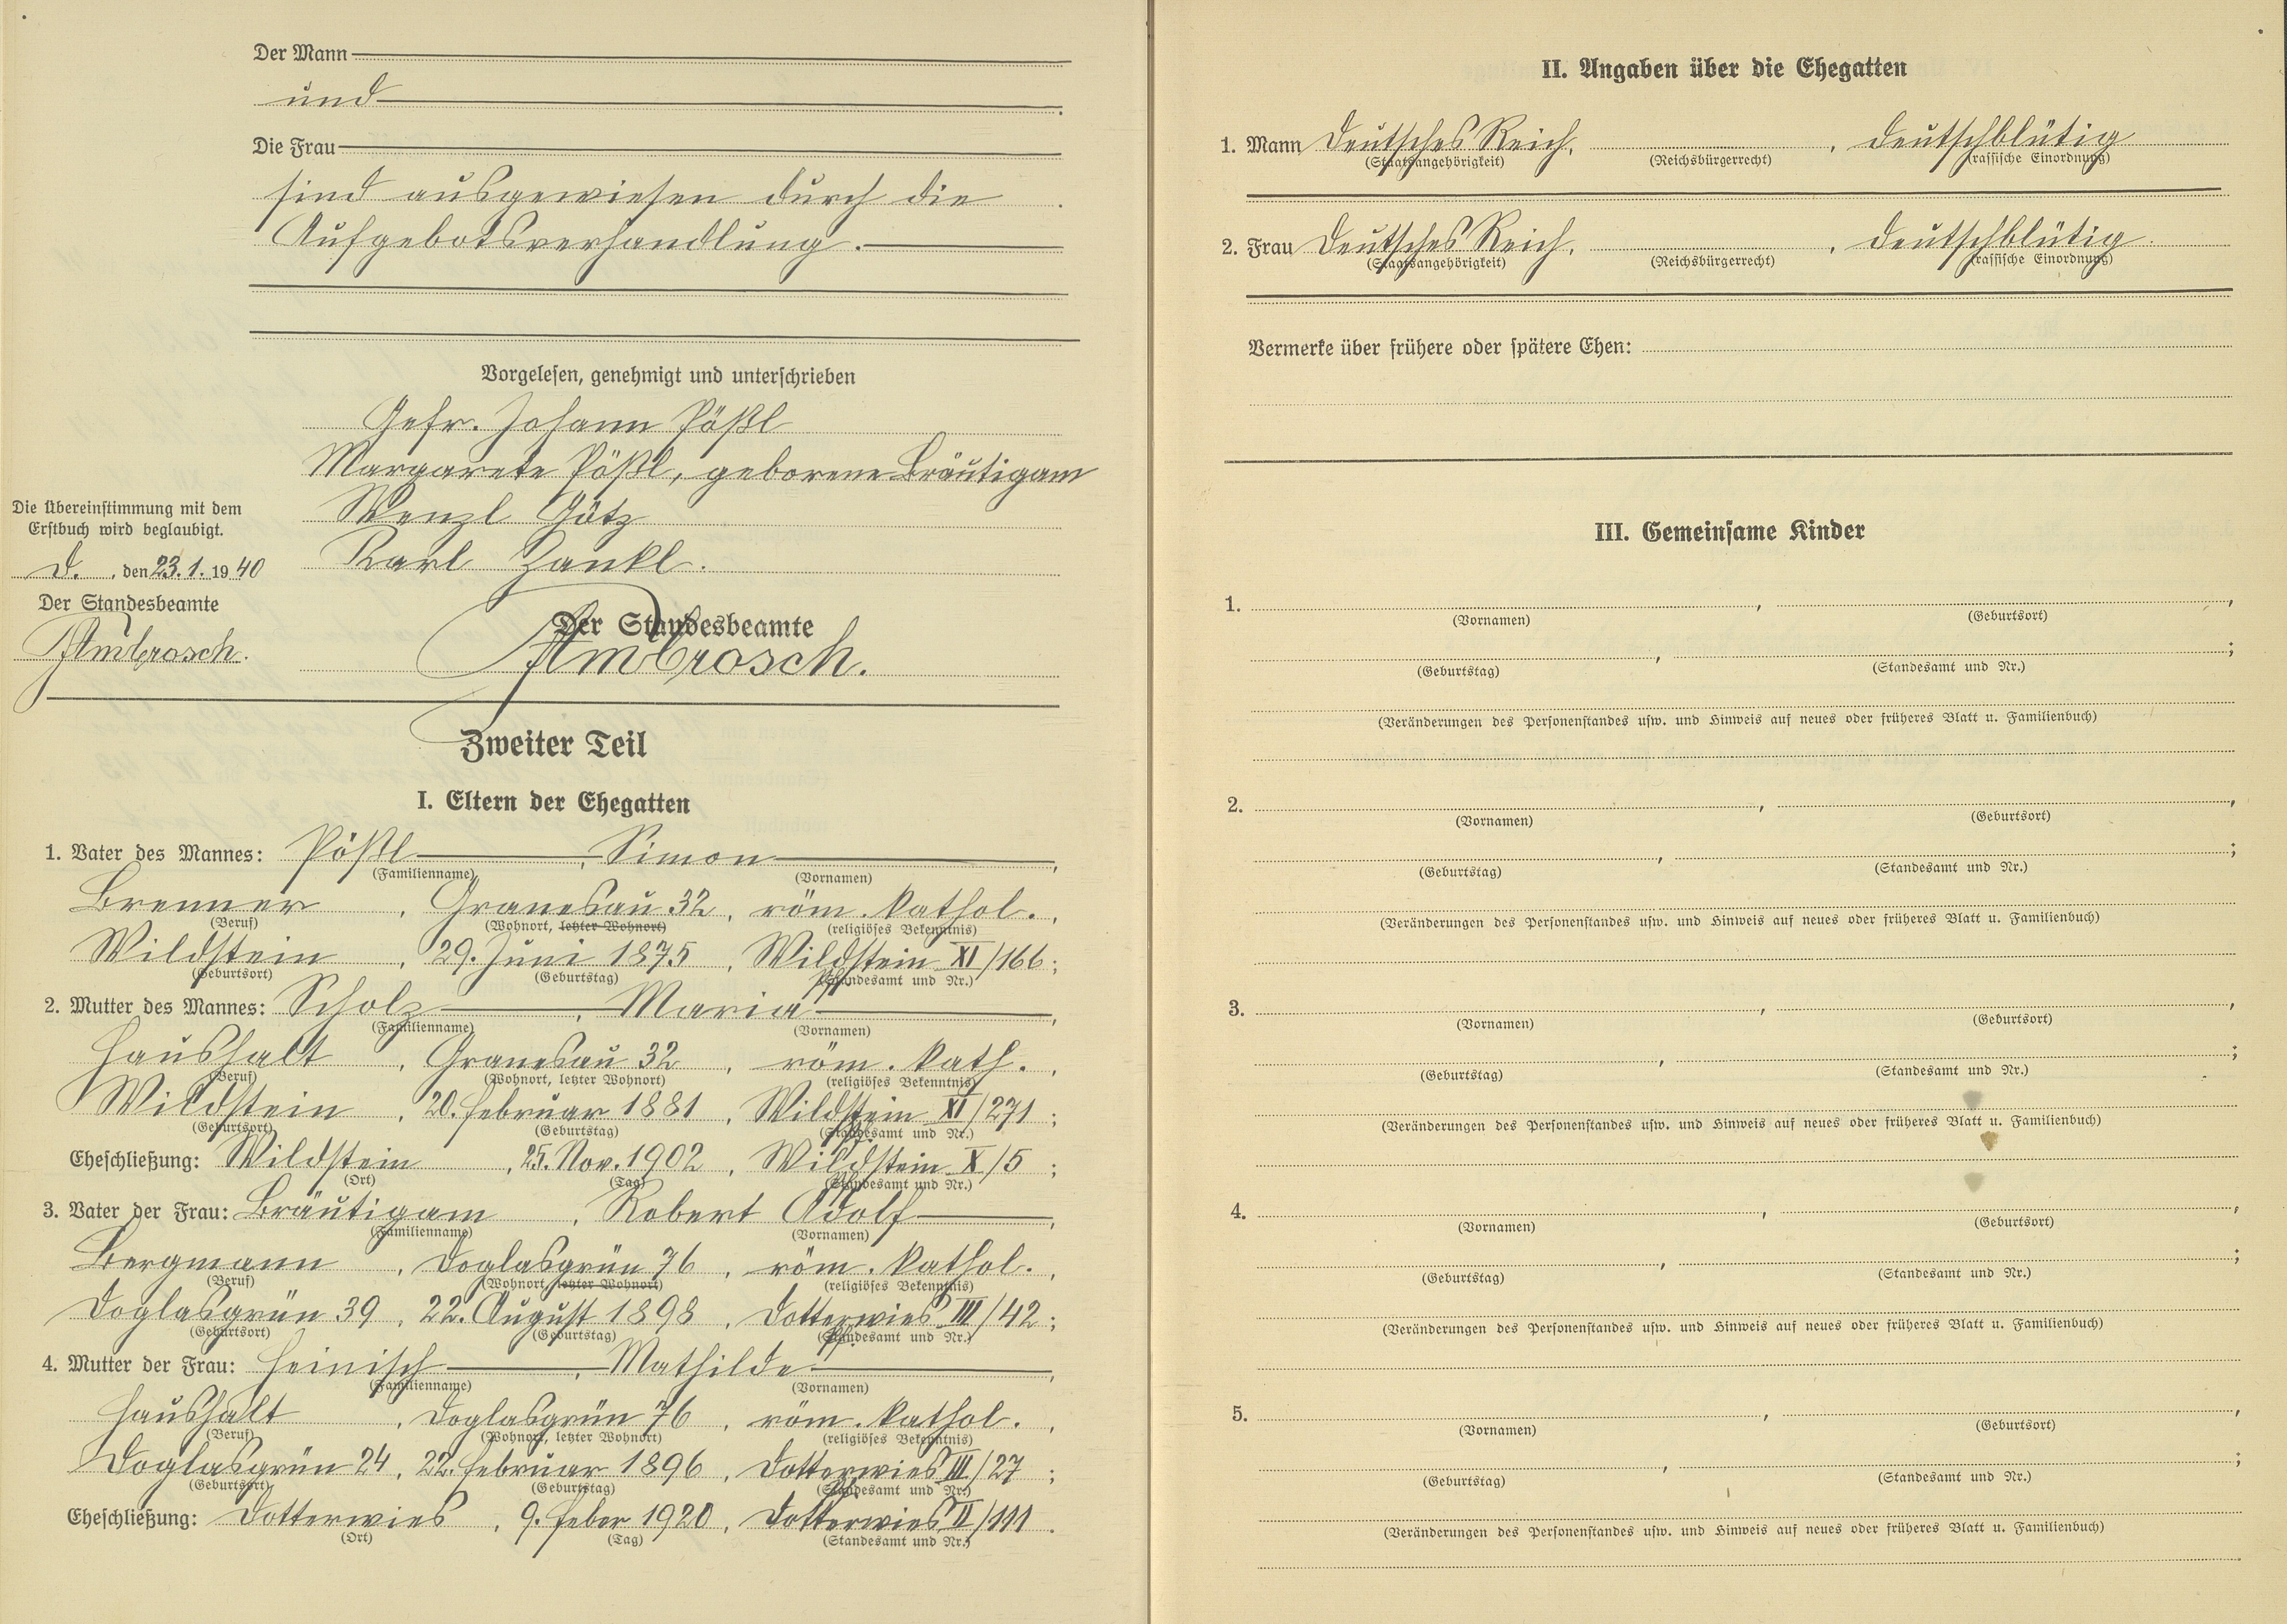 Der Mann
und
Die Frau
sind ausgewiesen durch die
Aufgebotsverhandlung.
Vorgelesen, genehmigt und unterschrieben
Gefr. Johann Pößl
Margarete Pößl, geborene Bräutigam
Wenzl Götz
Karl Zankl.
Die Übereinstimmung mit dem
Erstbuch wird beglaubigt.
D. , den 23. 1. 1940
Der Standesbeamte
Ambrosch.
Der Standesbeamte
Ambrosch.
Zweiter Teil
I. Eltern der Ehegatten
1. Vater des Mannes: Pößl , Simon ,
(Familienname) (Vornamen)
Brenner , Granesau 32 , röm. kathol. ,
(Beruf) (Wohnort, letzter Wohnort) (religiöses Bekenntnis)
Wildstein , 29. Juni 1875 , Wildstein XI/166 ;
(Geburtsort) (Geburtstag) (Standesamt und Nr.)
2. Mutter des Mannes: Scholz , Maria ,
(Familienname) (Vornamen)
Haushalt , Granesau 32 , röm. kath. ,
(Beruf) (Wohnort, letzter Wohnort) (religiöses Bekenntnis)
Wildstein , 20. Februar 1881 , Wildstein XI/271 ;
(Geburtsort) (Geburtstag) (Standesamt und Nr.)
Eheschließung: Wildstein , 25. Nov. 1902 , Wildstein X/5 ;
(Ort) (Tag) (Standesamt und Nr.)
3. Vater der Frau: Bräutigam , Robert Adolf ,
(Familienname) (Vornamen)
Bergmann , Doglasgrün 76 , röm. kathol. ,
(Beruf) (Wohnort, letzter Wohnort) (religiöses Bekenntnis)
Doglasgrün 39 , 22. August 1898 , Dotterwies III/42 ;
(Geburtsort) (Geburtstag) (Standesamt und Nr.)
4. Mutter der Frau: Heinisch , Mathilde ,
(Familienname) (Vornamen)
Haushalt , Doglasgrün 76 , röm. kathol. ,
(Beruf) (Wohnort, letzter Wohnort) (religiöses Bekenntnis)
Doglasgrün 24 , 22. Februar 1896 , Dotterwies III/27 ;
(Geburtsort) (Geburtstag) (Standesamt und Nr.)
Eheschließung: Dotterwies , 9. Feber 1920 , Dotterwies II/111 .
(Ort) (Tag) (Standesamt und Nr.)
II. Angaben über die Ehegatten
1. Mann Deutsches Reich, , deutschblütig
(Staatsangehörigkeit) (Reichsbürgerrecht) (rassische Einordnung)
2. Frau Deutsches Reich, , deutschblütig.
(Staatsangehörigkeit) (Reichsbürgerrecht) (rassische Einordnung)
Vermerke über frühere oder spätere Ehen:
III. Gemeinsame Kinder
1. , ,
(Vornamen) (Geburtsort)
, ;
(Geburtstag) (Standesamt und Nr.)
(Veränderungen des Personenstandes usw. und Hinweis auf neues oder früheres Blatt u. Familienbuch)
2. , ,
(Vornamen) (Geburtsort)
, ;
(Geburtstag) (Standesamt und Nr.)
(Veränderungen des Personenstandes usw. und Hinweis auf neues oder früheres Blatt u. Familienbuch)
3. , ,
(Vornamen) (Geburtsort)
, ;
(Geburtstag) (Standesamt und Nr.)
(Veränderungen des Personenstandes usw. und Hinweis auf neues oder früheres Blatt u. Familienbuch)
4. , ,
(Vornamen) (Geburtsort)
, ;
(Geburtstag) (Standesamt und Nr.)
(Veränderungen des Personenstandes usw. und Hinweis auf neues oder früheres Blatt u. Familienbuch)
5. , ,
(Vornamen) (Geburtsort)
, ;
(Geburtstag) (Standesamt und Nr.)
(Veränderungen des Personenstandes usw. und Hinweis auf neues oder früheres Blatt u. Familienbuch)